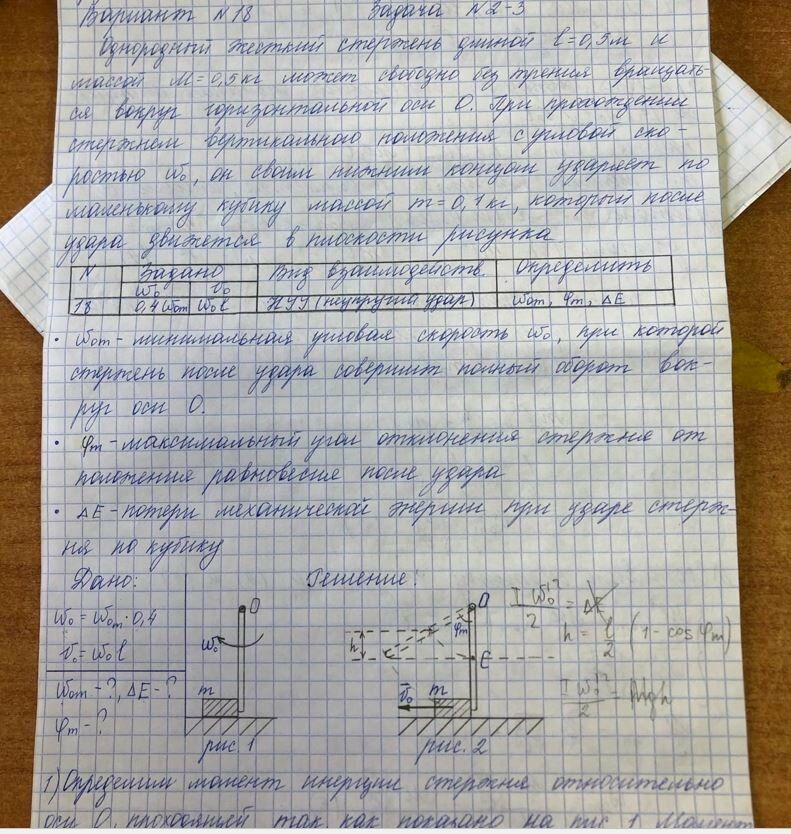 Вариант N 18 Задача N 2-3
Однородный жесткий стержень длиной l=0,5м и
массой M=0,5кг может свободно без трения вращать-
ся вокруг горизонтальной оси О. При прохождении
стержнем вертикального положения с угловой ско-
ростью ω₀, он своим нижним концом ударяет по
маленькому кубику массой m=0,1кг, который после
удара движется в плоскости рисунка
N Задано Вид взаимодейств. Определить
ω₀ v₀
18 0,4ω₀m ω₀l НУУ (неупругий удар) ω₀m, φm, ΔE
• ω₀m - минимальная угловая скорость ω₀, при которой
стержень после удара совершит полный оборот вок-
руг оси О.
• φm - максимальный угол отклонения стержня от
положения равновесия после удара
• ΔE - потери механической энергии при ударе стерж-
ня по кубику
Дано: Решение:
ω₀ = ω₀m·0,4
v₀ = ω₀l
ω₀m - ?, ΔE - ?
φm - ?
O
ω₀
m
рис. 1
O
φm
h
C
v₀ m
рис. 2
I ω₀'²/2 = ΔE
h = l/2 (1 - cos φm)
I ω₀'²/2 = Mgh
1) Определим момент инерции стержня относительно
оси О, проходящей так как показано на рис 1. Момент